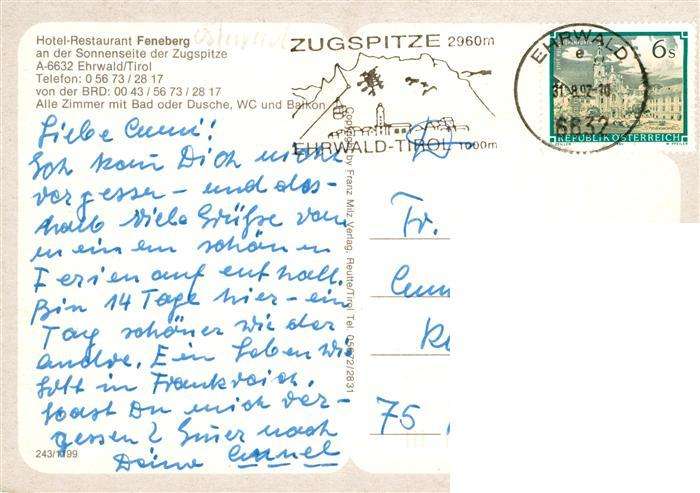 Hotel-Restaurant Feneberg
an der Sonnenseite der Zugspitze
A-6632 Ehrwald/Tirol
Telefon: 0 56 73 / 28 17
von der BRD: 00 43 / 56 73 / 28 17
Alle Zimmer mit Bad oder Dusche, WC und Balkon
ZUGSPITZE 2960m
EHRWALD-TIROL 1000m
EHRWALD
e
6632
6s
REPUBLIK ÖSTERREICH
Liebe
Ich kann Dich nicht
vergessen - und des-
halb viele Grüße von
meinem schönen
Ferienaufenthalt.
Bin 14 Tage hier - ein
Tag schöner wie der
andre. Ein Leben wie
Gott in Frankreich.
Hast Du mich ver-
gessen?
Deine
Fr.
75
Copyright by Franz Milz Verlag, Reutte/Tirol Tel. 05672/2831
243/1199